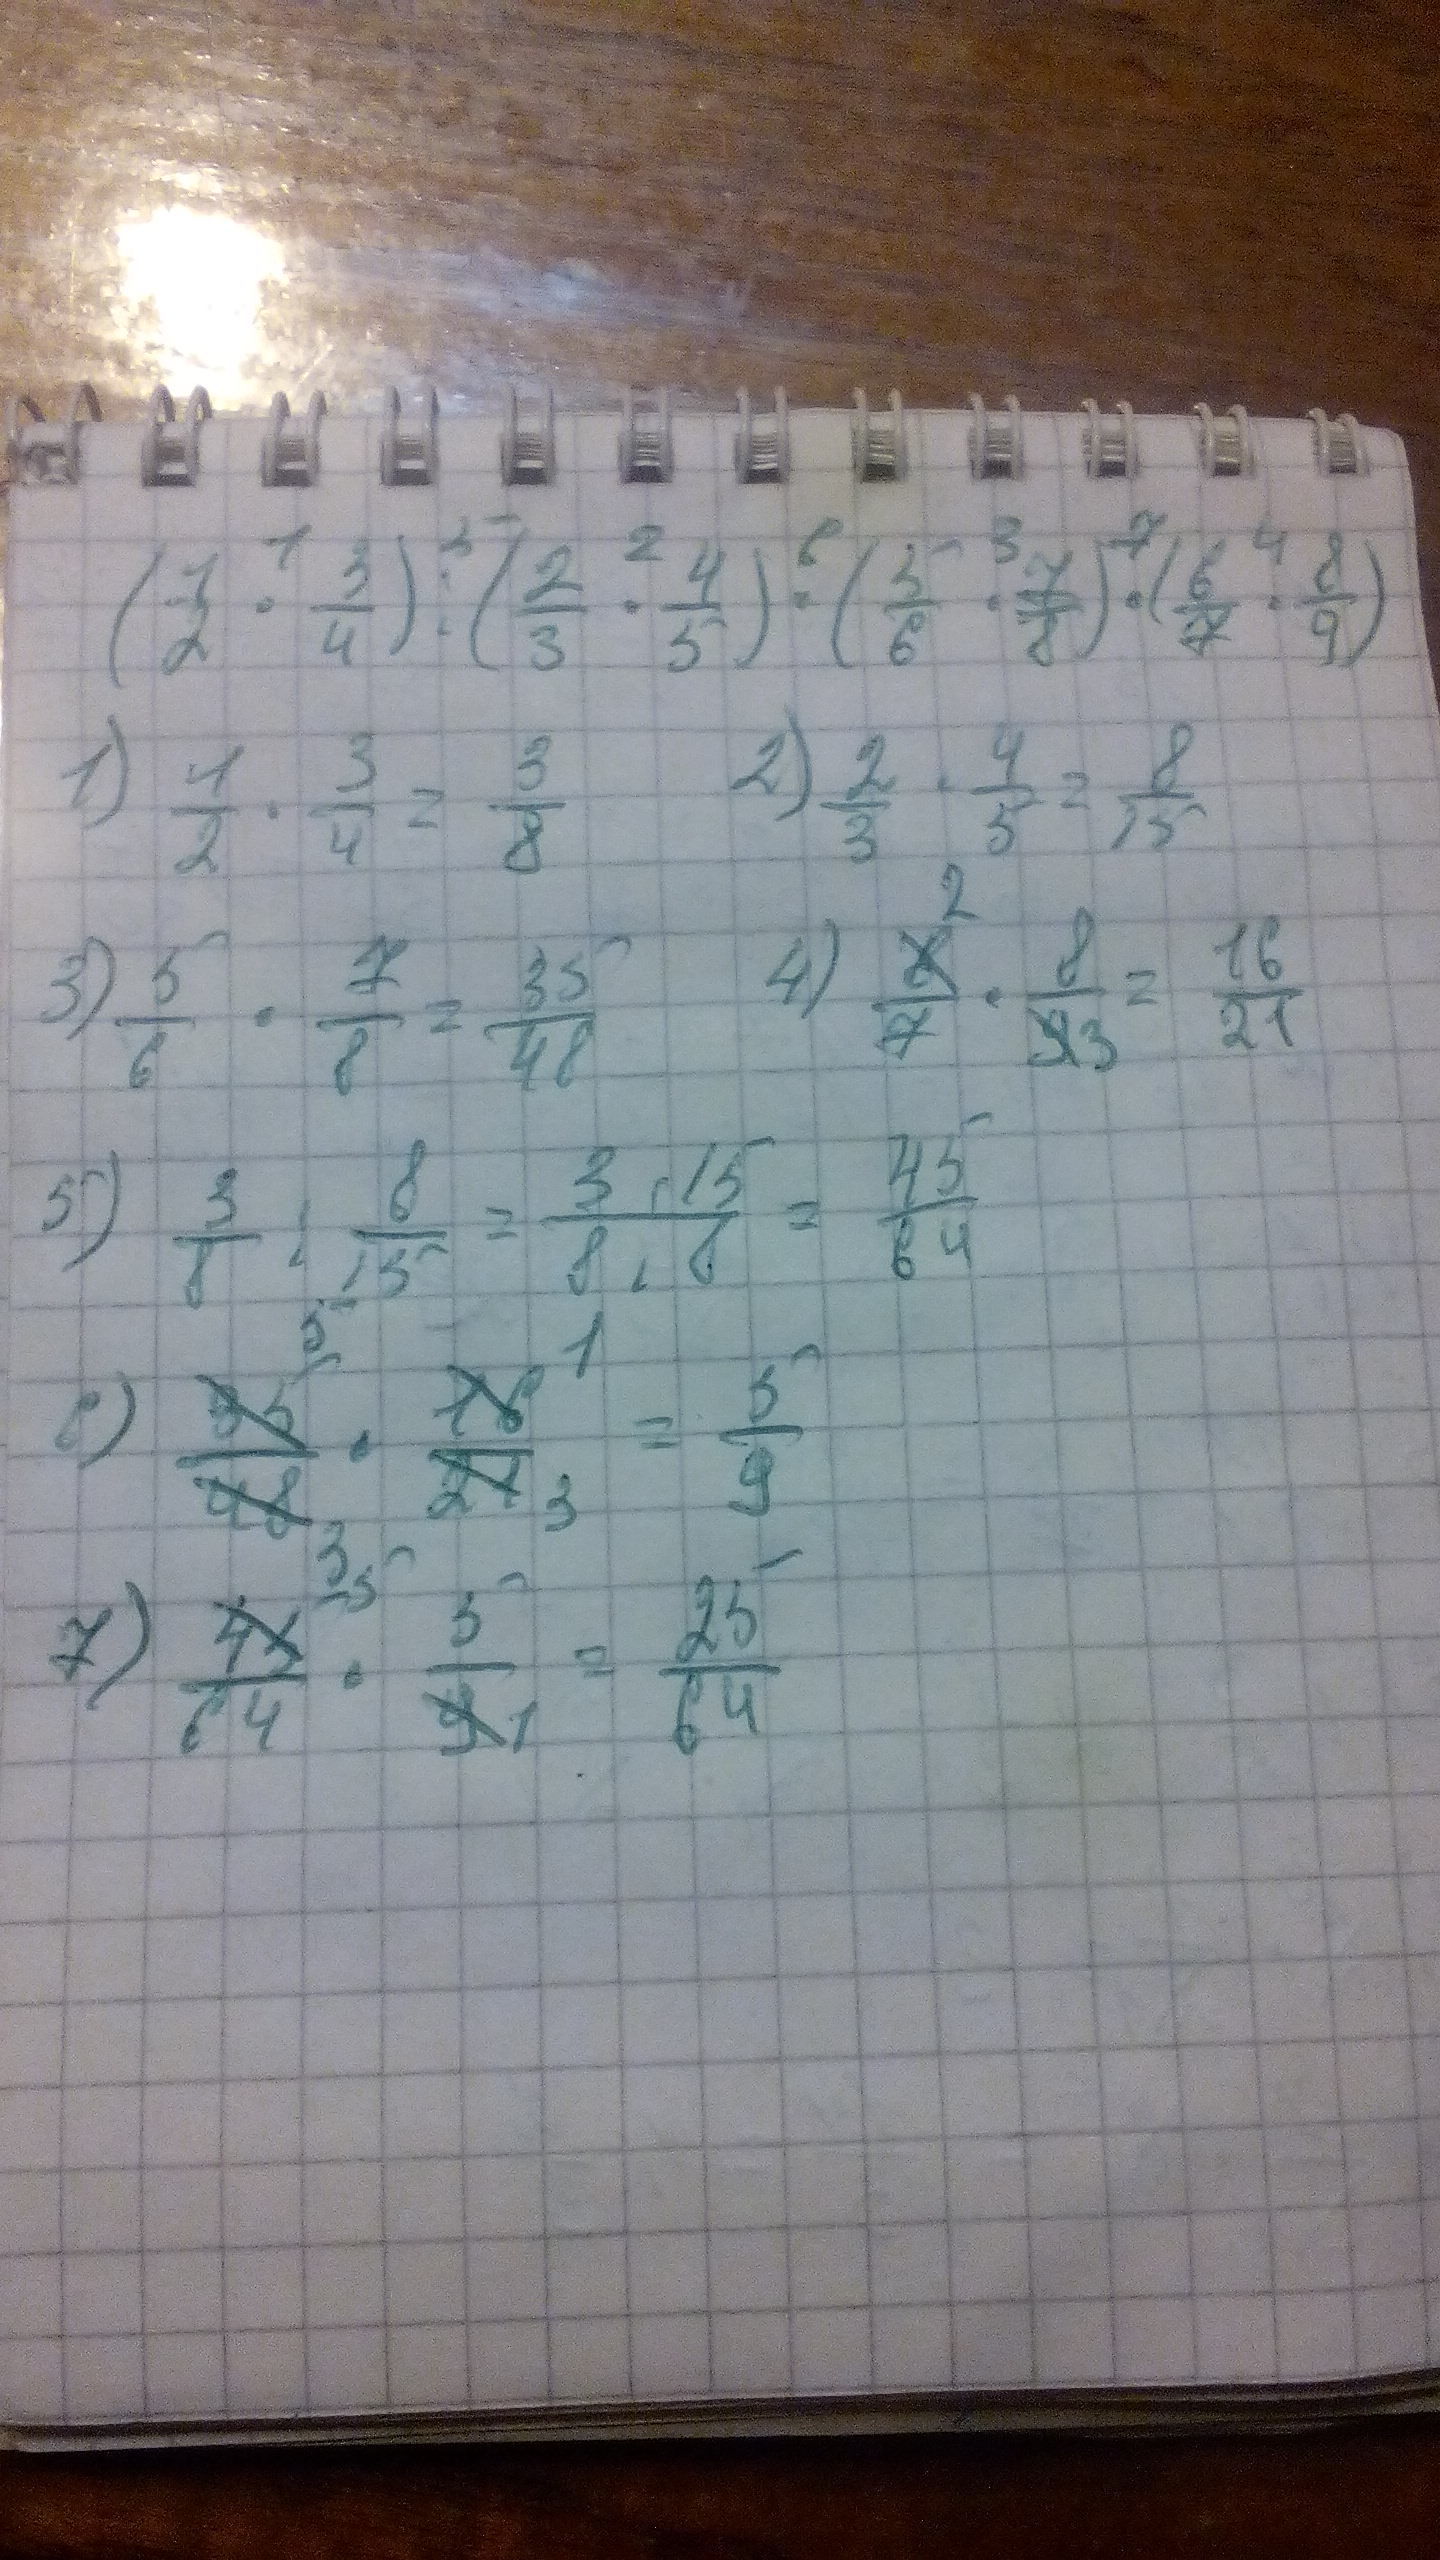 (1/2 ·¹ 3/4) :⁵ (2/3 ·² 4/5) ·⁶ (5/6 ·³ 7/8) ·⁷ (6/7 ·⁴ 8/9)
1) 1/2 · 3/4 = 3/8 2) 2/3 · 4/5 = 8/15
3) 5/6 · 7/8 = 35/48 4) 6 2/7 · 8/9 3 = 16/21
5) 3/8 : 8/15 = 3 · 15/8 · 8 = 45/64
6) 35 5/48 3 · 16 1/21 3 = 5/9
7) 45 5/64 · 5/9 1 = 25/64